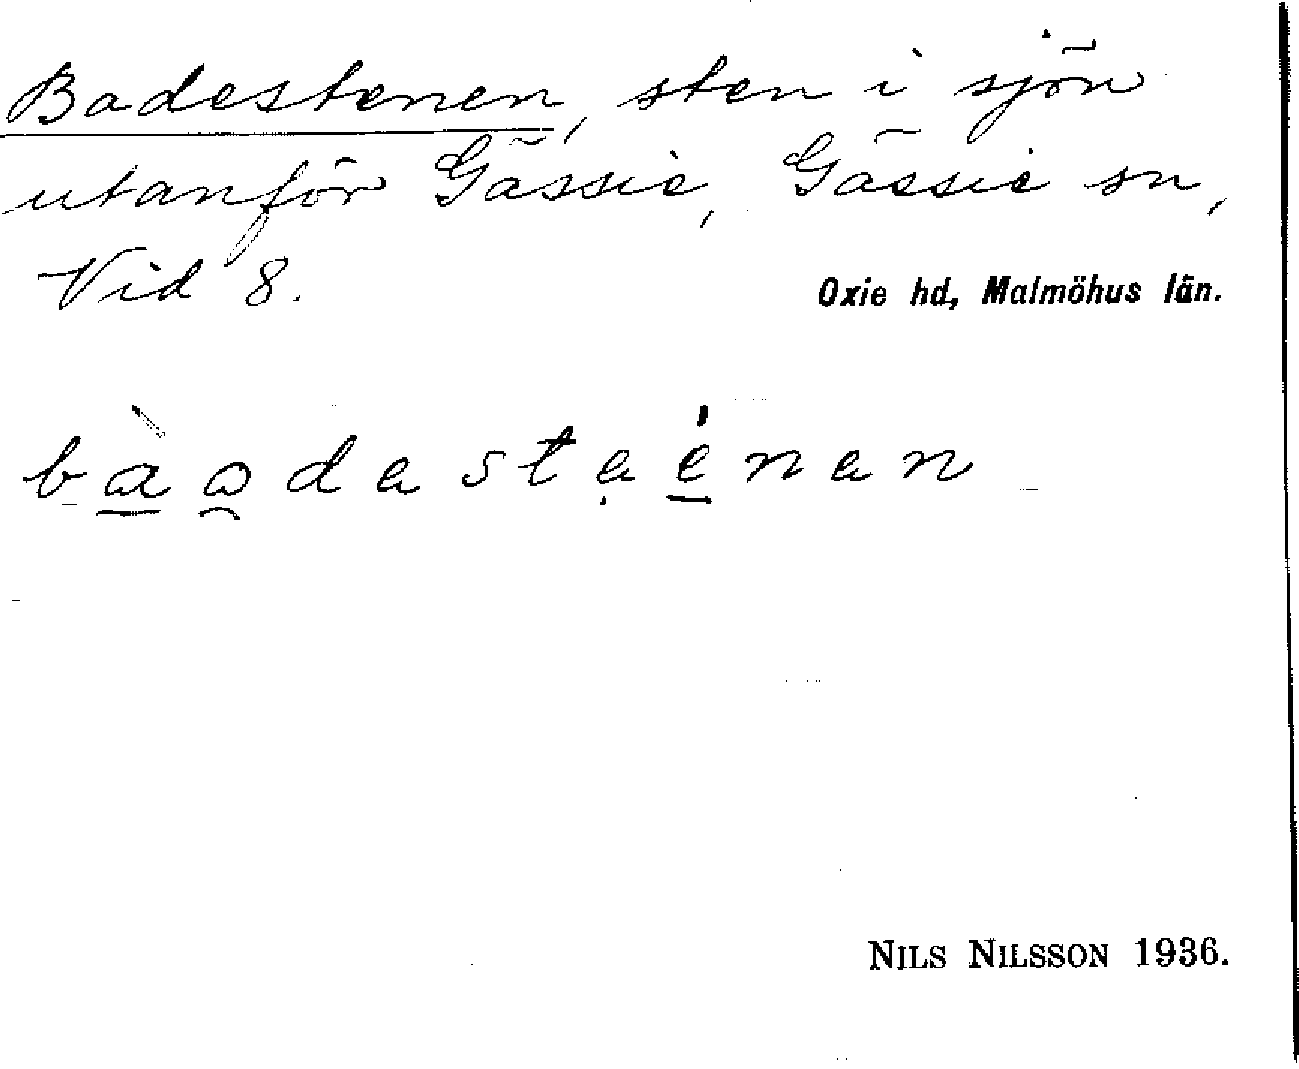 Badestenen, sten i sjön
utanför Gässie, Gässie sn,
Vid 8.
Oxie hd, Malmöhus län.
NILS NILSSON 1936.